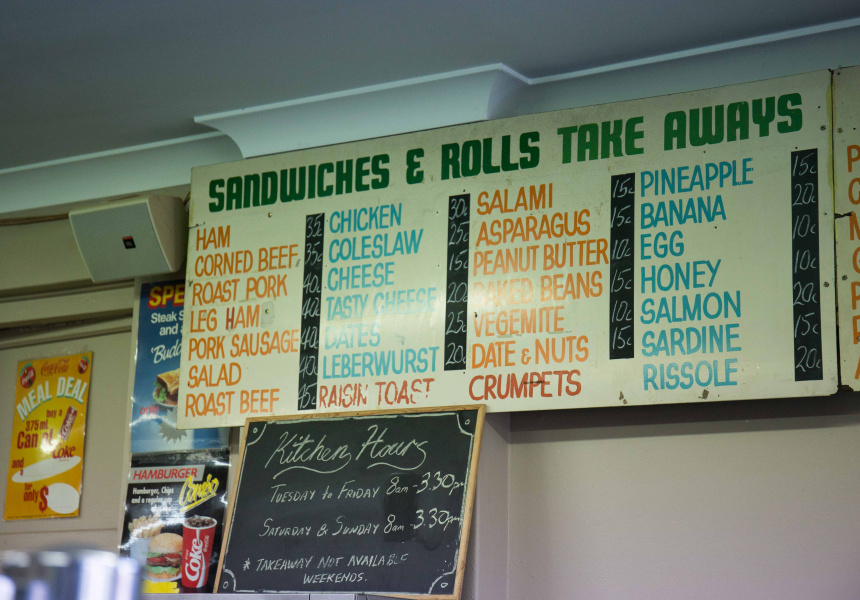 SANDWICHES & ROLLS TAKE AWAYS
HAM
CORNED BEEF
ROAST PORK
LEG HAM
PORK SAUSAGE
SALAD
ROAST BEEF
35c
CHICKEN
COLESLAW
CHEESE
TASTY CHEESE
DATES
LEBERWURST
RAISIN TOAST
30c
25c
15c
20c
25c
20c
SALAMI
ASPARAGUS
PEANUT BUTTER
BAKED BEANS
VEGEMITE
DATE & NUTS
CRUMPETS
15c
15c
10c
15c
10c
15c
PINEAPPLE
BANANA
EGG
HONEY
SALMON
SARDINE
RISSOLE
15c
20c
10c
10c
20c
15c
20c
Coca-Cola
MEAL DEAL
buy a
375ml
Can of
Coke
and
for
only $
Steak S
and
HAMBURGER
Combo
Hamburger, Chips
and a regular
Coke
Kitchen Hours
TUESDAY to FRIDAY 8am - 3.30pm
SATURDAY & SUNDAY 8am - 3.30pm
* TAKEAWAY NOT AVAILABLE
WEEKENDS.